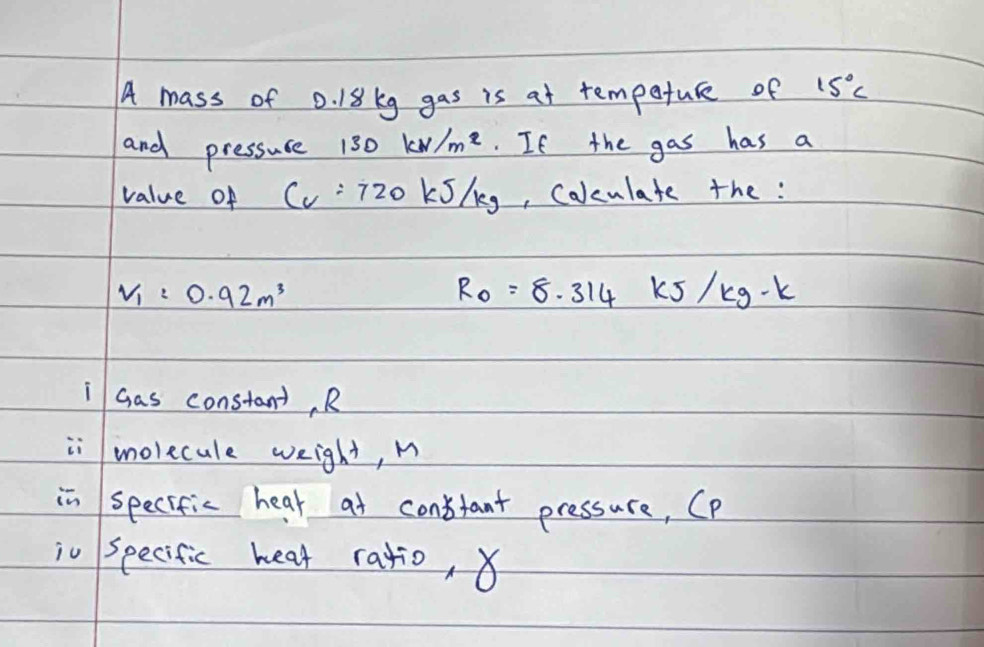 A mass of 0.18 kg gas is at tempature of 15°c
and pressure 130 kN/m². If the gas has a
value of Cv = 720 kJ/kg, Calculate the :
V₁ = 0.92m³ Ro = 8.314 kJ/kg-k
i Gas constant, R
ii molecule weight, M
iii specific heat at constant pressure, Cp
iv specific heat ratio, γ